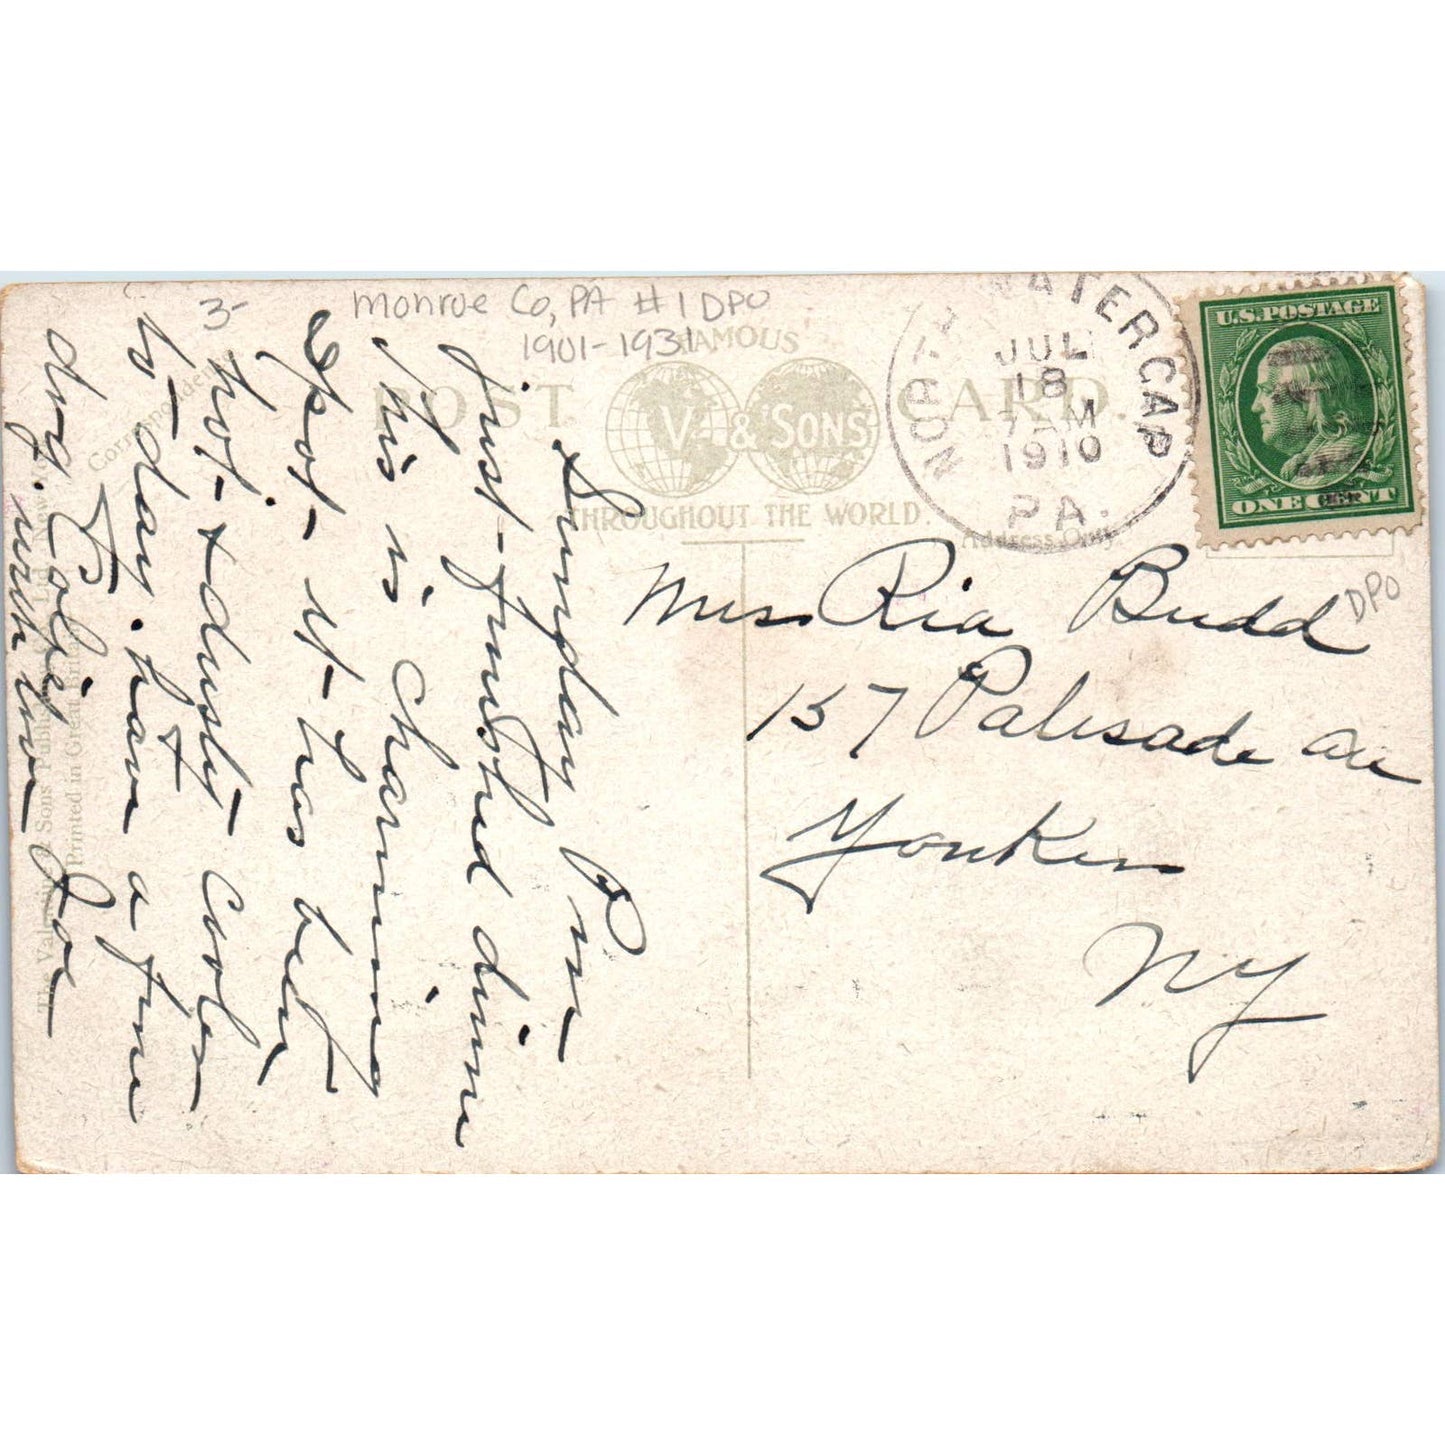 3-
Monroe Co, PA #1 DPO
1901-1931
FAMOUS
POST CARD.
V. & SONS
THROUGHOUT THE WORLD.
Address Only.
NORTH WATER GAP
JUL
18
7 AM
1910
PA.
U.S. POSTAGE
ONE CENT
DPO
Miss Ria Budd
157 Palisade Ave
Yonkers
NY
Correspondence
Printed in Great Britain
Sunday Pm
just finished dinner
This is charming
spot- it- has been
hot- & dusty- cooler
to-day. have a fine
dog. Collie
with love Joe